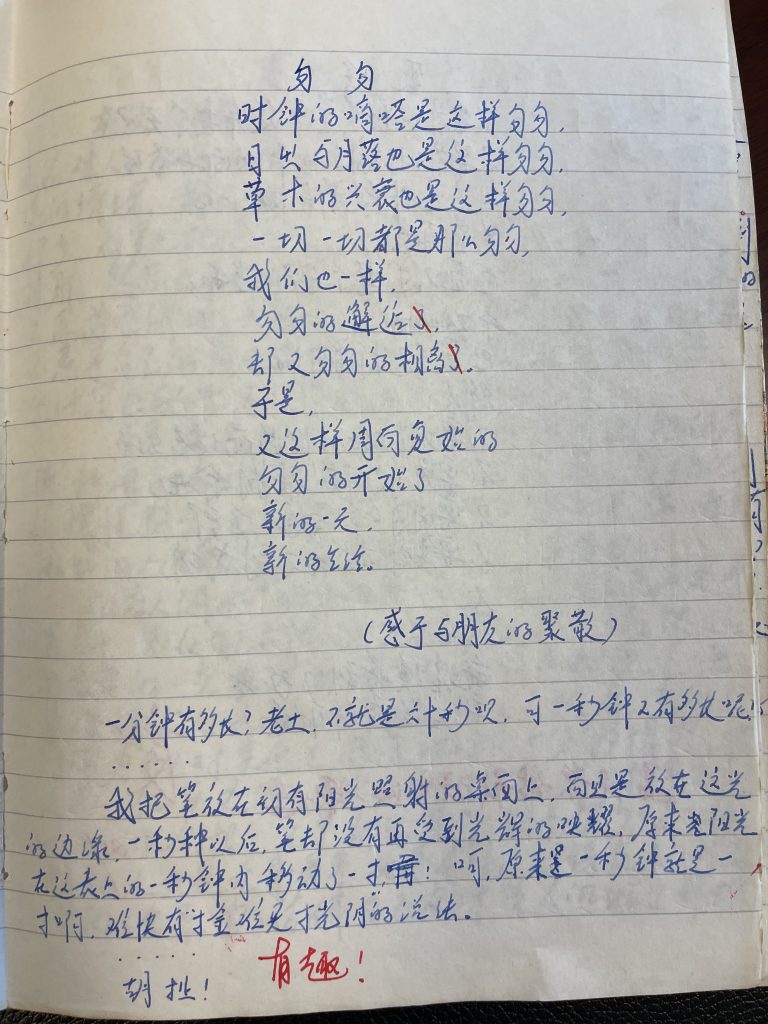 匆 匆
时钟的嘀嗒是这样匆匆,
日出与月落也是这样匆匆,
草木的兴衰也是这样匆匆,
一切一切都是那么匆匆,
我们也一样,
匆匆的邂逅了,
却又匆匆的相离了。
于是,
又这样周而复始的
匆匆的开始了
新的一元,
新的生活。
(感于与朋友的聚散)
一分钟有多长?老土,不就是六十秒呗,可一秒钟又有多长呢?
......
我把笔放在初有阳光照射的桌面上,而且是放在这光
的边缘,一秒种以后,笔却没有再受到光辉的映耀,原来是阳光
在这表上的一秒钟内移动了一寸,呵,原来是一秒钟就是一
寸啊,难怪有寸金难买寸光阴的说法。
......
胡扯! 有趣!